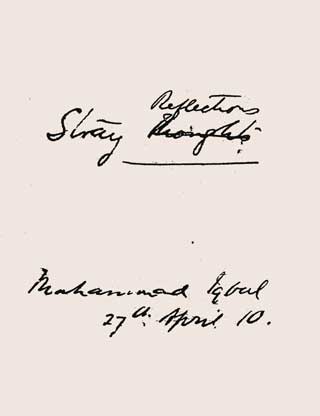 Reflections
Stray Thoughts
Muhammad Iqbal
27th. April 10.